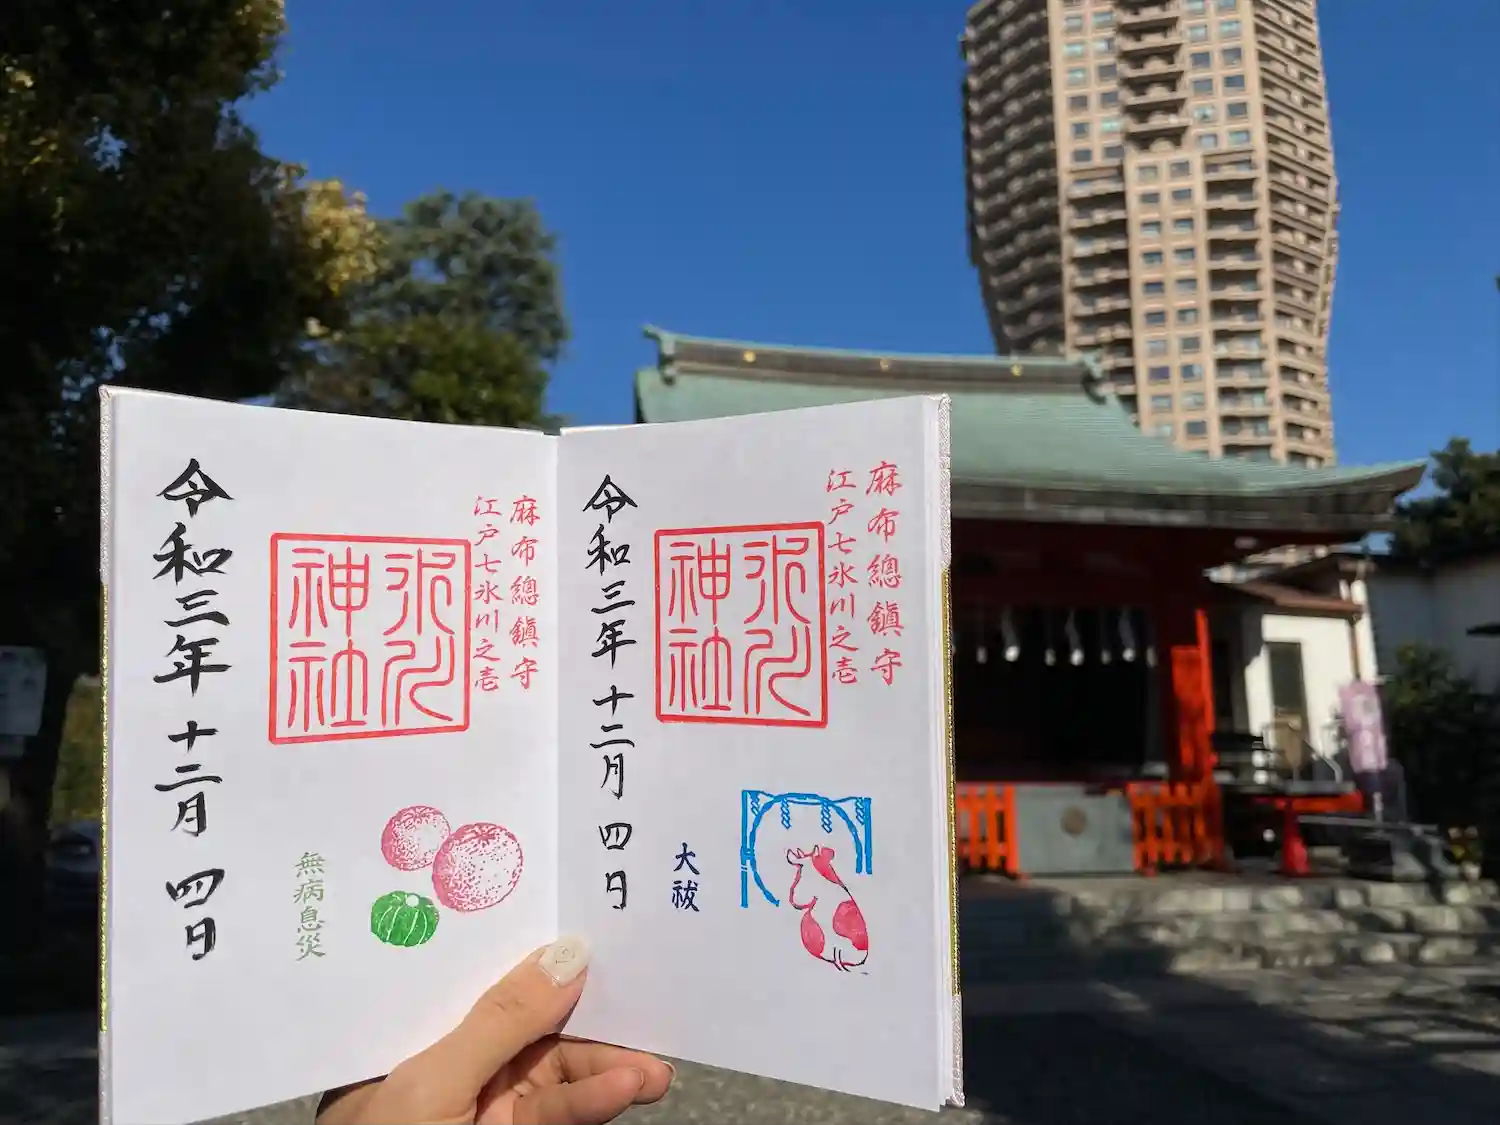 麻布總鎮守
江戸七氷川之壱
氷川
神社
令和三年 十二月 四日
大祓
麻布總鎮守
江戸七氷川之壱
氷川
神社
令和三年 十二月 四日
無病息災